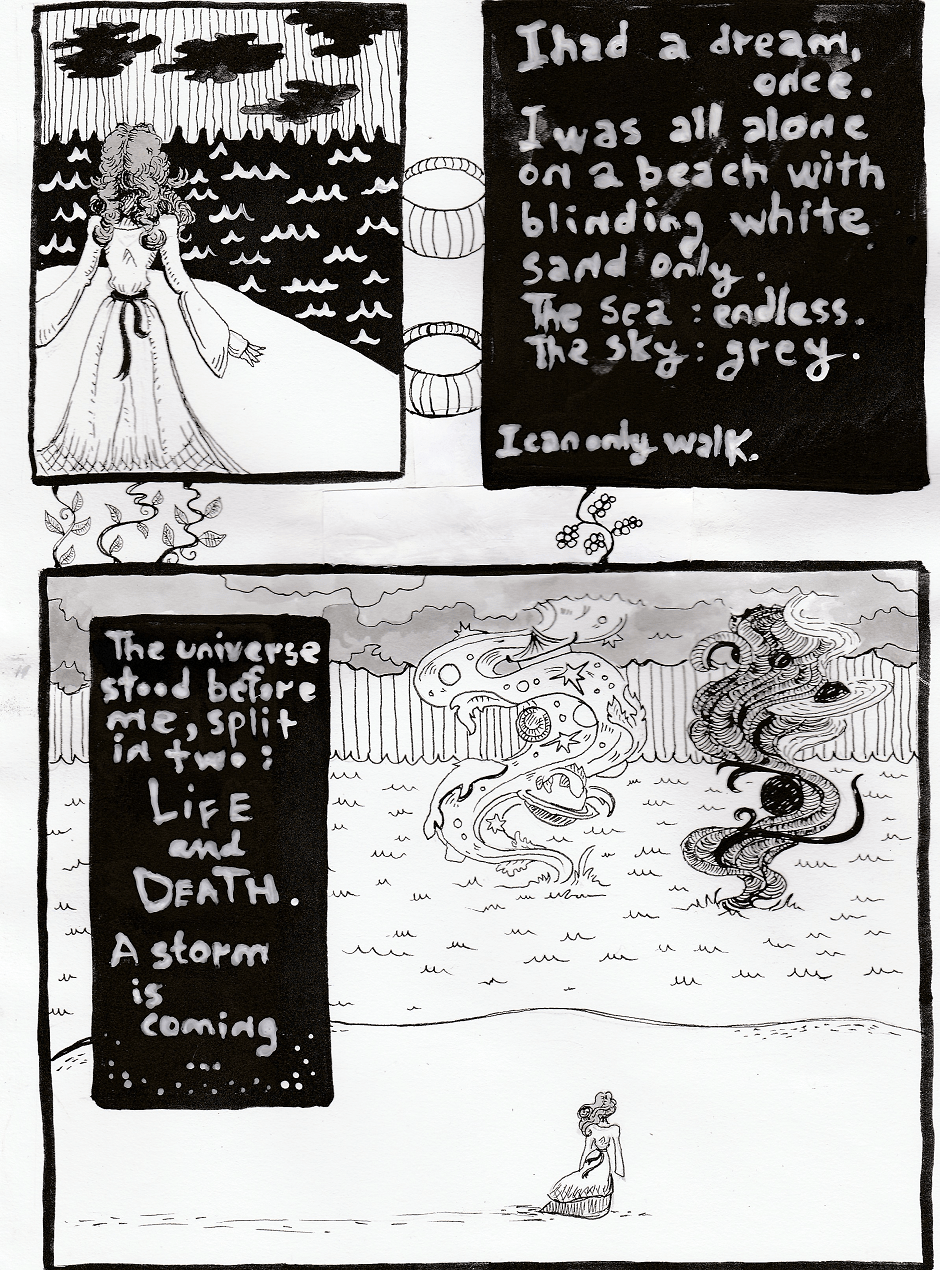 I had a dream,
once.
I was all alone
on a beach with
blinding white
sand only.
The sea : endless.
The sky : grey.
I can only walk.
The universe
stood before
me, split
in two :
LiFE
and
DEATH.
A storm
is
coming
...